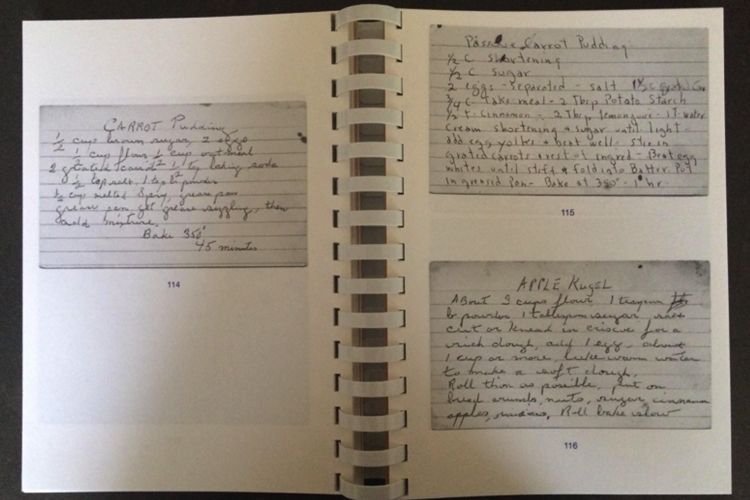 CARROT Pudding
1/2 cup brown sugar, 2 eggs
1 cup flour 1/2 cup oatmeal
2 grated 1/2 tsp baking soda
1/2 tsp salt, 1 tsp b powder
1/2 cup melted Spry, grease pan
grease can get grease sizzling, then
add mixture.
Bake 350°
45 minutes
114
Carrot Pudding
1/2 C Shortening
1/2 C Sugar
2 eggs - Separated - salt
3/4 C Cake meal - 2 Tbsp Potato Starch
1/2 t. Cinnamon - 2 Tbsp lemon juice - 1 T water
Cream shortening & sugar until light -
add egg yolks & beat well - Stir in
grated carrots & rest of ingred - Beat egg
whites until stiff & fold into Batter Put
in greased Pan - Bake at 350° - 1 hr.
115
APPLE Kugel
About 3 cups flour, 1 teaspoon
b powder 1 tablespoon sugar, salt
cut or knead in crisco for a
rich dough, add 1 egg - about
1 cup or more, luke warm water
to make a soft dough.
Roll thin as possible, put on
bread crumbs, nuts, sugar, cinnamon
apples, raisins, Roll bake slow
116